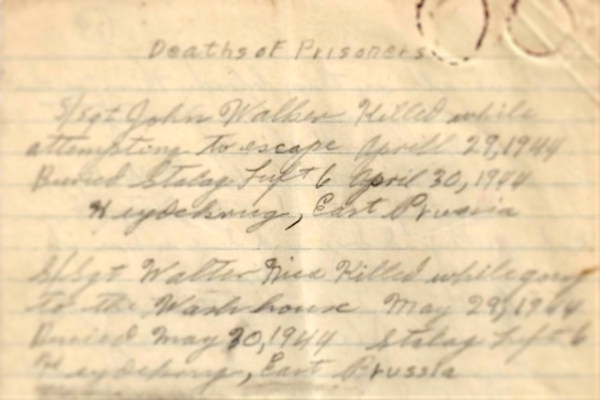 Deaths of Prisoners
S/Sgt John Walker Killed while
attempting to escape April 29, 1944
Buried Stalag Luft 6 April 30, 1944
Heydekrug, East Prussia
S/Sgt Walter Nies Killed while going
to the Washhouse May 29, 1944
Buried May 30, 1944 Stalag Luft 6
Heydekrug, East Prussia